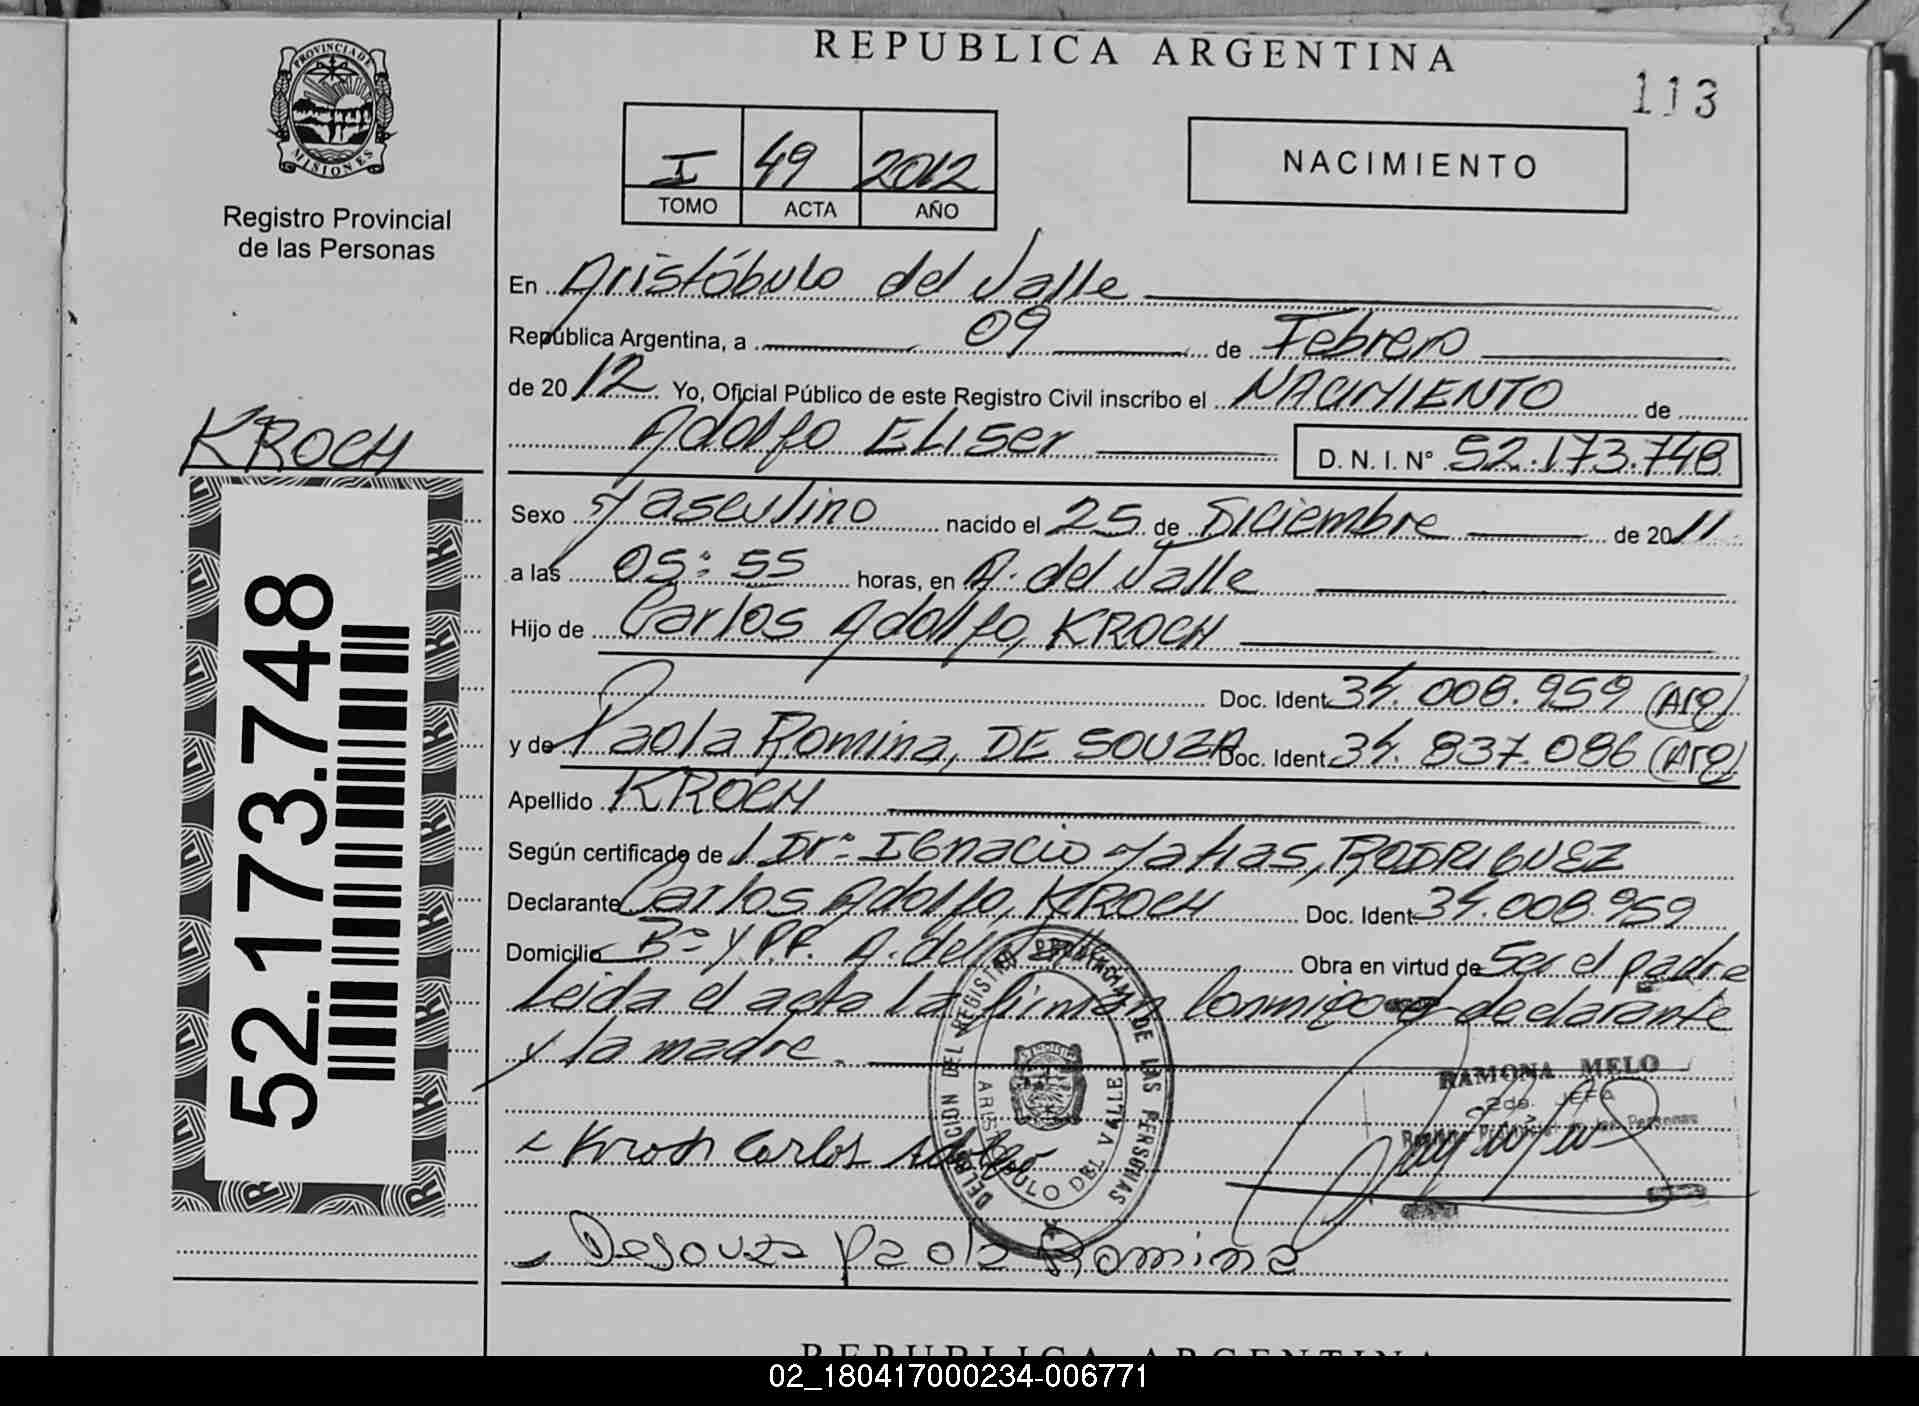 REPUBLICA ARGENTINA
113
PROVINCIA DE
MISIONES
Registro Provincial
de las Personas
I 49 2012
TOMO ACTA AÑO
NACIMIENTO
En Aristóbulo del Valle
Republica Argentina, a 09 de Febrero
de 2012 Yo, Oficial Público de este Registro Civil inscribo el NACIMIENTO de
KROCH
Adolfo ELISER D. N. I. N° 52.173.748
Sexo Masculino nacido el 25 de Diciembre de 2011
a las 05:55 horas, en A. del Valle
Hijo de Carlos Adolfo, KROCH
Doc. Ident. 34.008.959 (Arg)
y de Paola Romina, DE SOUZA Doc. Ident. 34.837.086 (Arg)
Apellido KROCH
Según certificado de Dr. IGnacio Matias, RODRIGUEZ
Declarante Carlos Adolfo, KROCH Doc. Ident. 34.008.959
Domicilio B° Y.P.F. A. del Valle Obra en virtud de Ser el padre
Leida el acta la firman Conmigo el declarante
y la madre.
52.173.748
DELEGACION DEL REGISTRO PROVINCIAL DE LAS PERSONAS
ARISTOBULO DEL VALLE
RAMONA MELO
2da. JEFA
Registro Provincial de las Personas
Kroch Carlos Adolfo
Desouza Paola Romina
REPUBLICA ARGENTINA
02_180417000234-006771